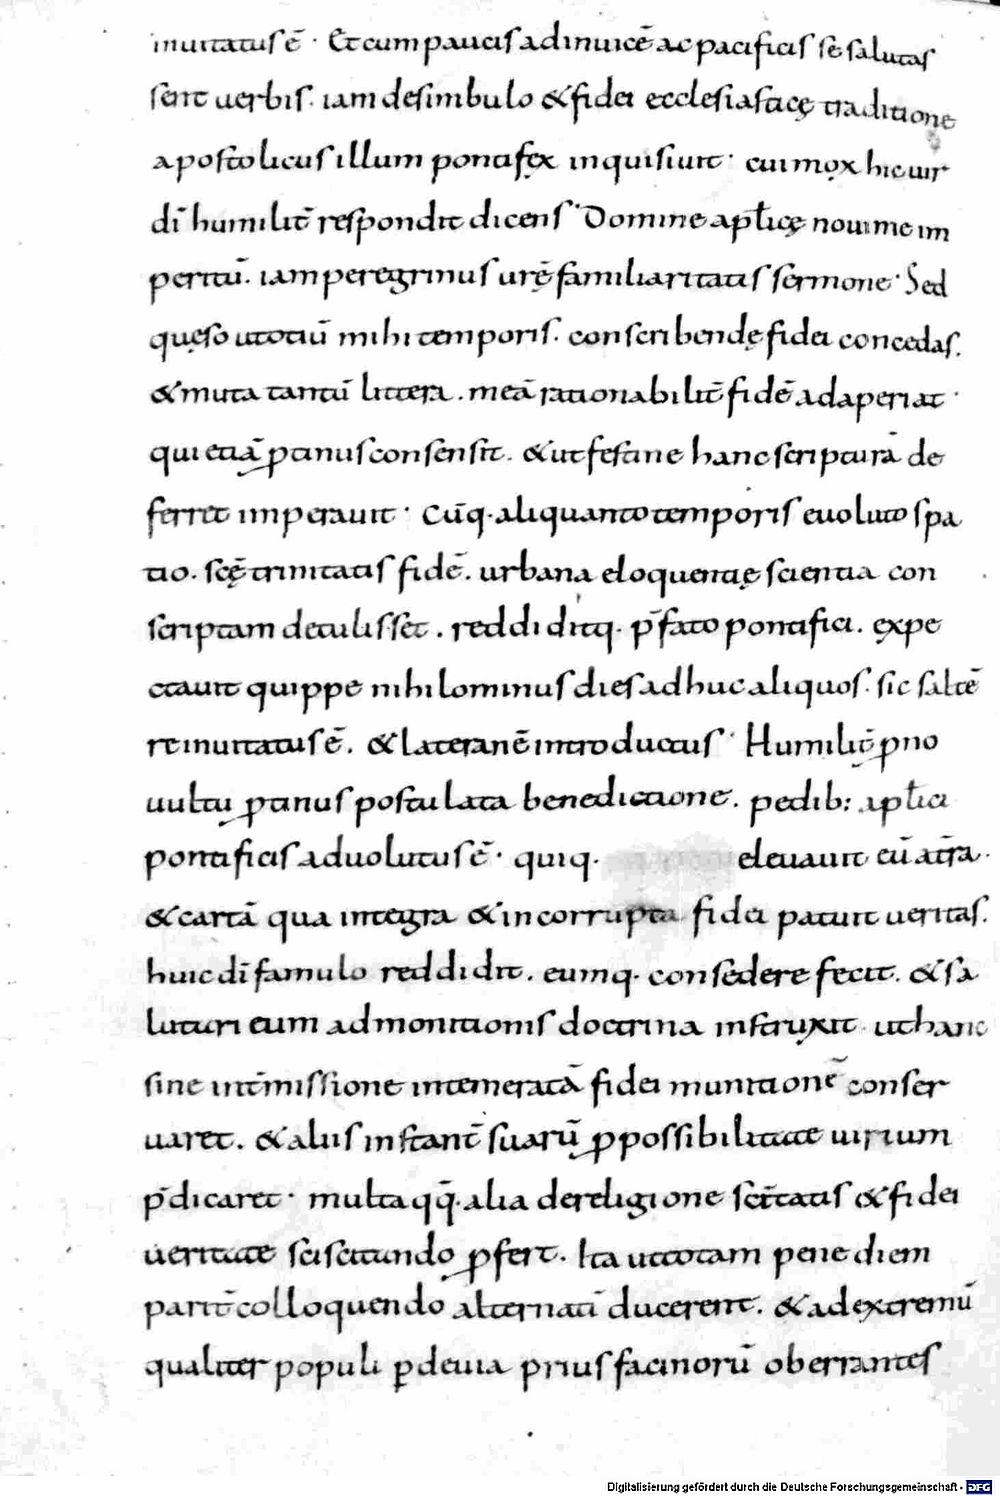 inuitatus ē· Et cum paucis adinuicē ac pacificis se salutas
sent uerbis. iam de simbulo & fidei ecclesiasticę traditione
apostolicus illum pontifex inquisiuit· cui mox hic uir
dī humilit̄ respondit dicens· Domine apƚicę noui me im
peritū. iam peregrinus urę̄ familiaritatis sermone· Sed
quęso ut otiū mihi temporis. conscribendę fidei concedas.
& muta tantū littera. meā rationabilit̄ fidē adaperiat·
qui etiā ꝓtinus consensit. & ut festine hanc scripturā de
ferret imperauit· Cūq· aliquanto temporis euoluto spa
tio. scę̄ trinitatis fidē. urbana eloquentię scientia con
scriptam detulisset. reddiditq· p̄fato pontifici. expe
ctauit quippe nihilominus dies adhuc aliquos. sic saltē
reinuitatus ē. & lateranē introductus· Humilit̄ ꝓno
uultu ꝓtinus postulata benedictione. pedib: apƚici
pontificis aduolutus ē· quiq· eleuauit eū a tr̄a·
& cartā qua integra & incorrupta fidei patuit ueritas.
huic dī famulo reddidit. eumq· consedere fecit. & sa
lutari eum admonitionis doctrina instruxit ut hanc
sine int̄missione intemeratā fidei munitionē conser
uaret. & aliis instant̄ suarū ꝓ possibilitate uirium
p̄dicaret· multa qq̄· alia de religione scītatis & fidei
ueritate sciscitando ꝓfert. Ita ut totam pene diem
parit̄ colloquendo alternatī ducerent. & ad extremū
qualiter populi ꝑ deuia prius facinorū oberrantes
Digitalisierung gefördert durch die Deutsche Forschungsgemeinschaft - DFG